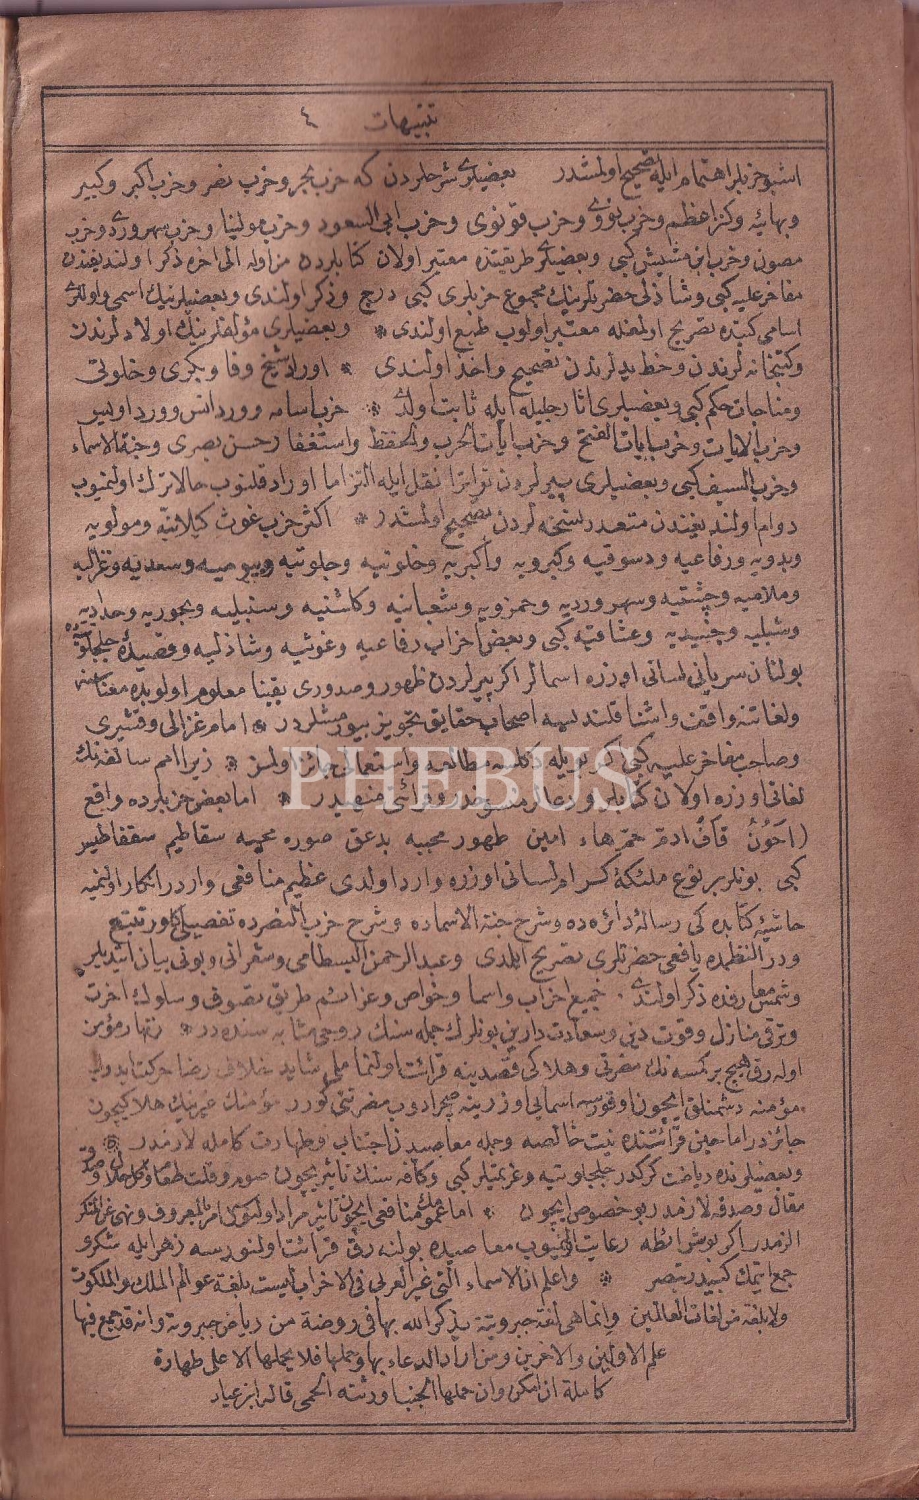 تنبيهات ٤
اشبو حزبلر اهتمام ايله تصحيح اولمشدر بعضيلرى شرحلردن كه حزب بحر وحزب نصر وحزب اكبر وكبير
وبهائيه وكنز اعظم وحزب نووى وحزب قونوى وحزب ابى السعود وحزب مولينا وحزب سهروردى وحزب
مصون وحزب ابن مشيش كبى وبعضيلرى طريقتنده معتبر اولان كتابلردن من اوله الى اخره ذكر اولنديغندن
مفاخر عليه كبى وشاذلى حضرتلرينك مجموع حزبلرى كبى درج وذكر اولندى وبعضيلرينك اسمى واولكرى
اسامى كتبده تصريح اولمغله معتبر اولوب طبع اولندى * وبعضيلرى مؤلفلرينك اولادلرندن
وكتبخانه لرندن وخط يدلرندن تصحيح واخذ اولندى * اوراد شيخ وفا وبكرى وخلوتى
ومناجات حكم كبى وبعضيلرى اثار جليله ايله ثابت اولدى * حزب اسامه وورد انس وورد اويس
وحزب الايات وحزب ايات الفتح وحزب ايات الحرب والحفظ واستغفار حسن بصرى وجنة الاسماء
وحزب السيف كبى وبعضيلرى پيرلردن تواترا نقل ايله التزاما اوراد قلنوب حالا ترك اولنميوب
دوام اولنديغندن متعدد نسخه لردن تصحيح اولمشدر * اكثر حزب غوث كيلانيه ومولويه
وبدويه ورفاعيه ودسوقيه وكبرويه واكبريه وخلوتيه وجلوتيه وبيوميه وسعديه وغزاليه
وملاميه وچشتيه وسهرورديه وحمزويه وشعبانيه وكاشنيه وسنبليه ونجوريه وحداديه
وشبليه وجنيديه وعشاقيه كبى وبعض احزاب رفاعيه وغوثيه وشاذليه وقصيدۀ جلجلوتيه ده
بولنان سريانى لسانى اوزره اسمالر اكر پيرلردن ظهور وصدورى يقينا معلوم اولوبده معناسنه
ولغاتنه واقف واشنا قلندلمه اصحاب حقايق تجويز بيورمشلردر * امام غزالى وقشيرى
وصاحب مفاخر عليه كبى اكر بويله دكلسه مطالعه واستعمالى جائز اولمز * زيرا امم سالفه نك
لغاتى اوزره اولان كتابلر ودعالر منسوخدر وقرائتى منهيدر * اما بعض حزبلرده واقع
(احون قاف ادم حم هاء امين طهور محببه بدعق صوره محببه سقاطيم سقفاطيس
كبى بونلر بر نوع ملئكۀ كرام لسانى اوزره وارد اولدى عظيم منافعى واردر انكار اولنميه
حاشيۀ كتابده كى رسالۀ دائره ده وشرح جنة الاسماده وشرح حزب النصرده تفصيلى كاور تتبع
ودر النظمده يافعى حضرتلرى تصريح ايلدى وعبدالرحمن البسطامى وشعرانى وبونى بيان ايتديلر
وشمس معارفده ذكر اولندى . جميع احزاب واسما وخواص وعزائم طريق تصوف وسلوك اخرت
وترقى منازل وقوت دين وسعادت دارين بونلرك جمله سنك روحى مثابه سنده در * تنها رمؤمن
اوله رق هيچ بر كمسه نك مضرتى وهلاكى قصدينه قرائت اولنماملى شايد خلافى رضا حركت ايدوب
مؤمنه دشمنلق ايچون اوقورسه اسمالى اوزرينه رجوع ايدوب مضرتنى كورر مؤمنك غيرينك هلاكيچون
جائزدر اما حين قرائتنده نيت خالصه وجمله معاصيدن اجتنابى وطهارت كامله لازمدر *
وبعضيلرنده رياضت كركدر جلجلوتيه وعزيمتلر كبى وكافه سنك تاثيريچون صوم وقلت طعام واكل حلال وصدق
مقال وصدقه لازمدر بو خصوص ايچون * اما عمومك منافعى ايچون تاثير مراد اولنورسه امر بالمعروف ونهى عن المنكر
الزمدر اكر بو شرائطه رعايت اولنميوب معاصيده بولنه رق قرائت اولنورسه زهر ايله شكرى
جمع ايتمك كبيدر تبصر * واعلم ان الاسماء التى غير العربى فى الاحزاب ليست بلغة عوالم الملك والملكوت
ولا بلغة من لغات العالمين وانما هى لغة جبروتية يذكر الله بها فى روضة من رياض جبروته وانه قد جمع فيها
علم الاولين والاخرين ومن اراد الدعاء بها وحملها فلا يحملها الا على طهارة
كاملة ان امكن وان حملها الجنب اورثته الحمى قاله ابن عياد
PHEBUS